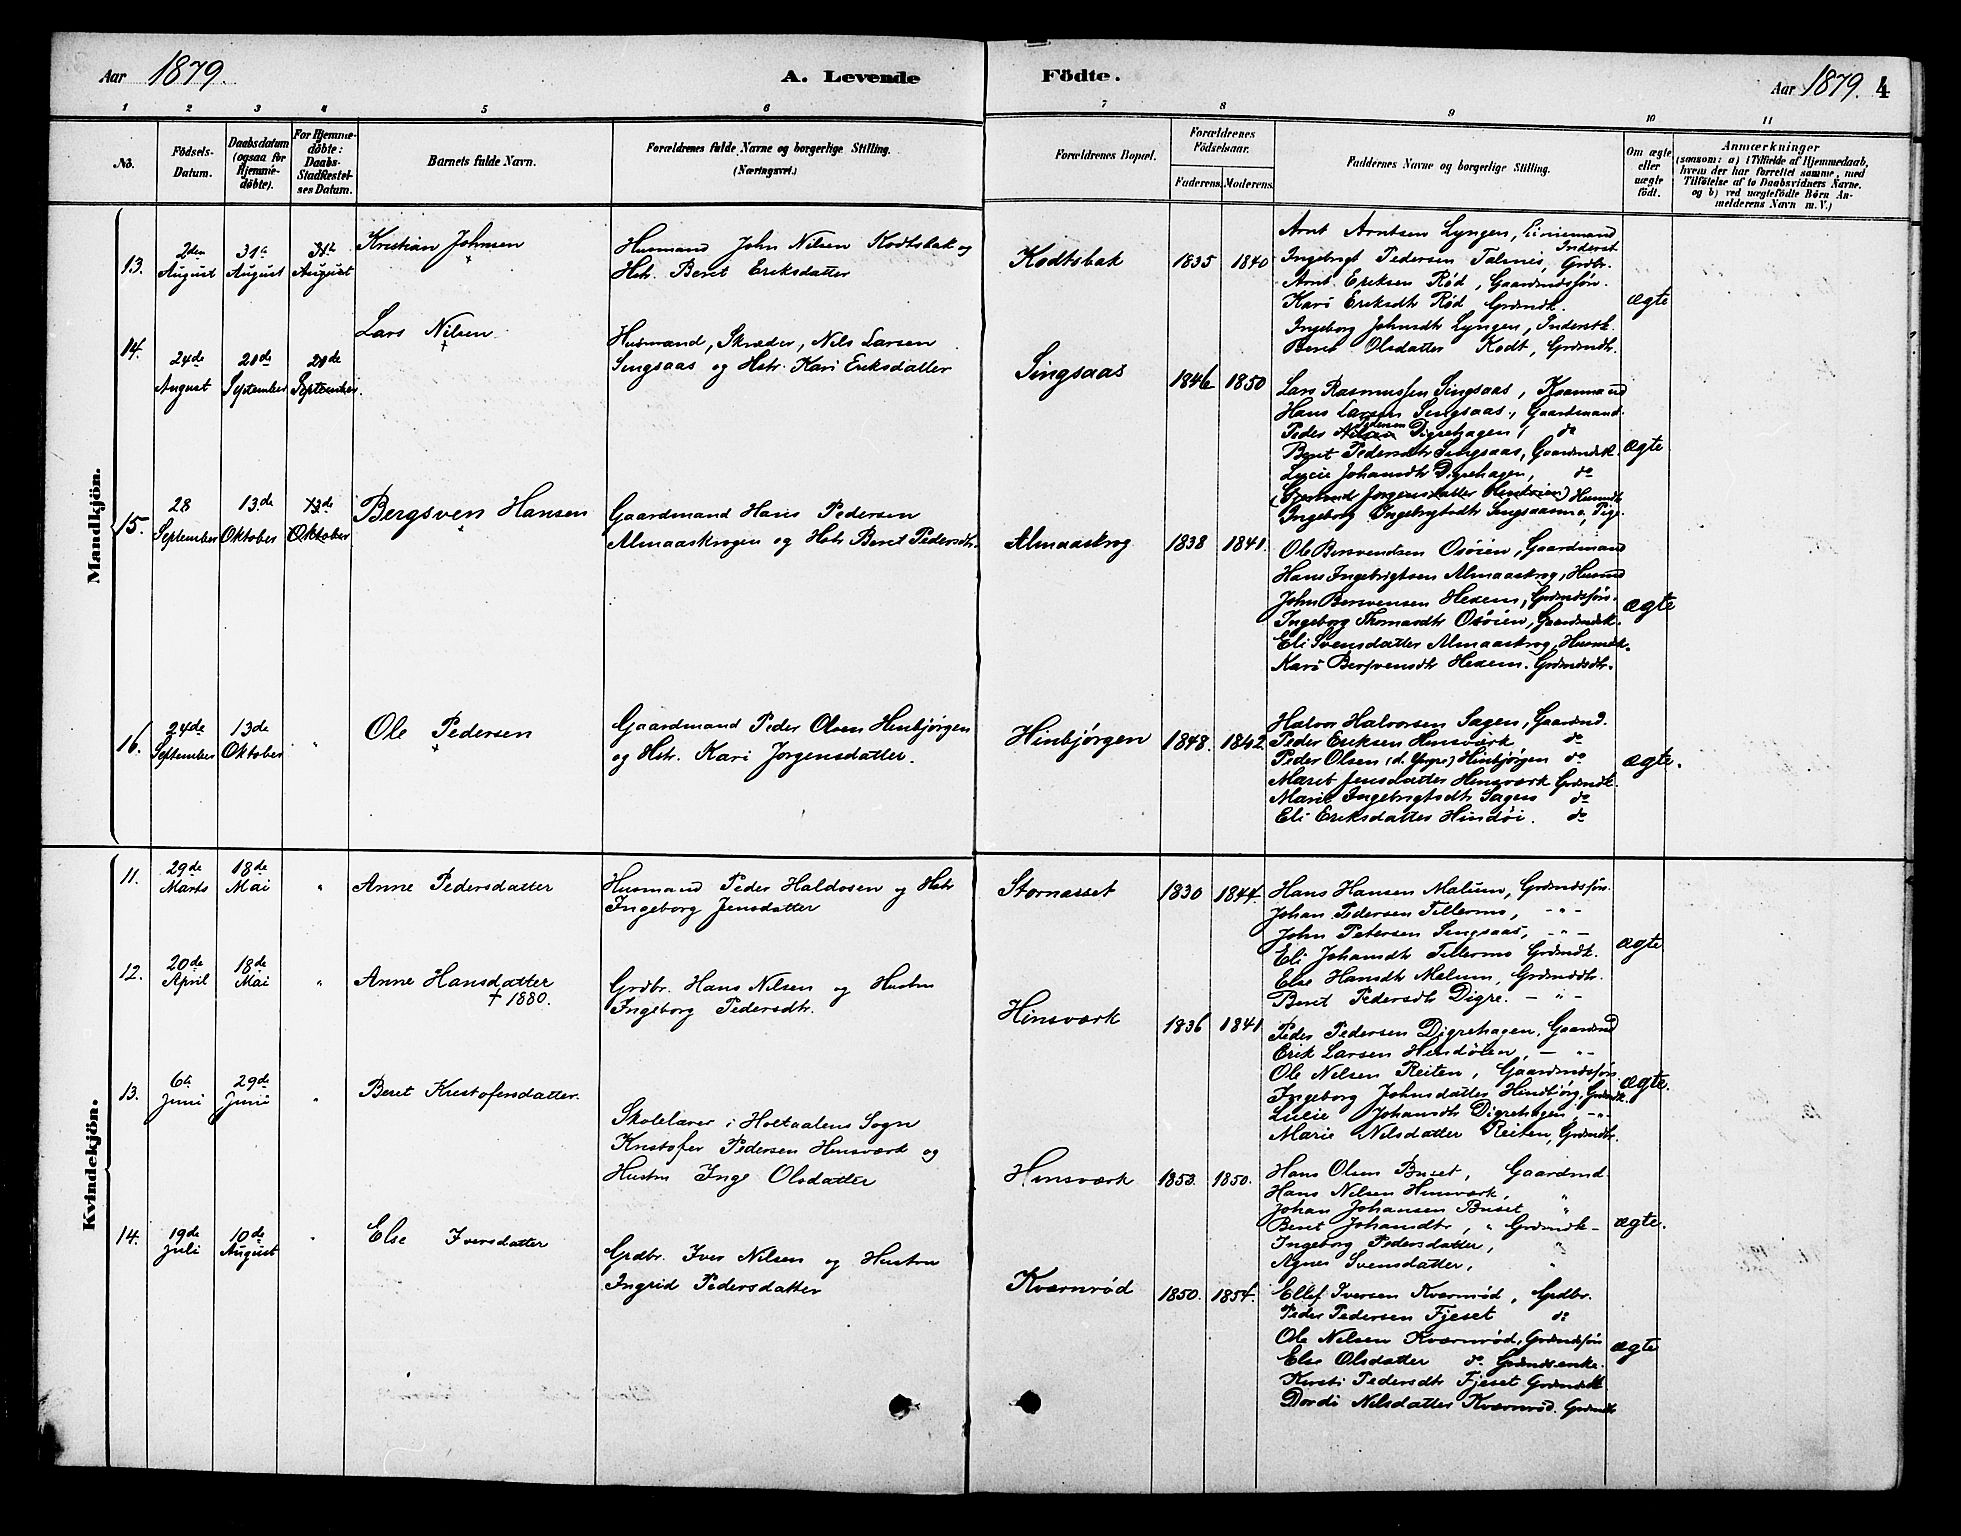 Aar 1879.
A. Levende
Födte.
Aar 1879. 4
1 2 3 4 5 6 7 8 9 10 11
No.
Födsels-
Datum.
Daabsdatum
(ogsaa for
Hjemme-
döbte).
For Hjemme-
döbte:
Daabs-
Stadfæstel-
ses Datum.
Barnets fulde Navn.
Forældrenes fulde Navne og borgerlige Stilling.
(Næringsvei.)
Forældrenes Bopæl.
Forældrenes
Födselsaar.
Faderens. Moderens.
Faddernes Navne og borgerlige Stilling.
Om ægte
eller
uægte
födt.
Anmærkninger
(saasom: a) i Tilfælde af Hjemmedaab,
hvem der har forrettet samme, med
Tilföielse af to Daabsvidners Navne,
og b) ved uægtefödte Börn An-
melderens Navn m. V.)
Mandkjön.
13.
2den
August
31te
August
31te
August
Kristian Johnsen
Husmand John Nilsen Kodtsbak og
Hstr. Beret Eriksdatter
Kodtsbak
1835 1840
Arnt Arntsen Lyngen,
Inderst
Ingebrigt Pedersen Talmes, Grdbr.
Arnt Eriksen Rød, Gaardmdsføn.
Kari Eriksdtr Rød, Grdmdk.
Ingeborg Johnsdtr Lyngen, Inderstk.
Beret Olsdatter Kodt, Grdmdtr.
ægte
14.
24de
August
21de
September
21de
September
Lars Nilsen
Husmand, Skræder, Nils Larsen
Singsaas og Hstr. Kari Eriksdatter
Singsaas
1846 1850
Lars Rasmussen Singsaas,
Hans Larsen Singsaas, Gaardmand.
Pedersen
Peder Nilsen Digrehagen, do
Beret Pedersdtr Singsaas, Gaardmdk.
Lucie Johansdtr Digrehagen, do
Jørgensdatter
Ingeborg Ingebrigtsdtr Singsaasmo, Pige.
ægte
15.
28
September
13de
Oktober
13de
Oktober
Bergsven Hansen
Gaardmand Hans Pedersen
Almaaskrogen og Hstr Beret Pedersdtr.
Almaaskrog
1838 1841.
Ole Bersvendsen Osøien, Gaardmand
Hans Ingebrigtsen Almaaskrog, Husmd
John Bersvensen Hexem, Grdmdsføn.
Ingeborg Thomasdtr Osøien, Gaardmdk.
Eli Svensdatter Almaaskrog, Husmdk.
Kari Bersvensdtr Hexem. Grdmdsdtr.
ægte
16.
24de
September
13de
Oktober
"
Ole Pedersen
Gaardmand Peder Olsen Hinbjørgen
og Hstr. Kari Jørgensdatter.
Hinbjørgen
1848. 1842.
Halvor Halvorsen Sagen, Gaardmd.
Peder Eriksen Hinsværk do
Peder Olsen (d. Yngre) Hinbjørgen do
Maret Jensdatter Hinsværk Grdmdk.
Marie Ingebrigtsdtr Sagen do
Eli Eriksdatter Hindøi. do
ægte.
Kvindekjön.
11.
29de
Marts
18de
Mai
"
Anne Pedersdatter
Husmand Peder Haldosen og Hstr
Ingeborg Jensdatter
Stornæsset
1830 1844.
Hans Hansen Malum, Grdmdsføn.
Johan Pedersen Tillermo, - " -
John Petersen Singsaas, - " -
Eli Johansdtr Tillermo Grdmdk.
Else Hansdtr Malum, Grdmddtr.
Beret Pedersdtr Digre. - " -
ægte
12.
20de
April
18de
Mai
"
Anne Hansdatter
† 1880.
Grdbr. Hans Nilsen og Hustru
Ingeborg Pedersdtr.
Hinsværk
1836 1841
Peder Pedersen Digrehagen, Gaardmd
Erik Larsen Hindølen, - " -
Ole Nilsen Reiten, Gaardmdsføn.
Ingeborg Johnsdatter Hinbjørg, Grdmdk.
Lucie Johansdtr Digrehagen, - " -
Marie Nilsdatter Reiten, Grdmdtr.
ægte.
13.
6te
Juni
29de
Juni
"
Beret Kristofersdatter.
Skolelærer i Holtaalens Sogn
Kristofer Pedersen Hinsværk og
Hustru Inge Olsdatter
Hinsværk
1853. 1850.
Hans Olsen Buset, Gaardmd.
Hans Nilsen Hinsværk, "
Johan Johansen Buset "
Beret Johansdtr, " Grdmdk-
Ingeborg Pedersdatter, "
Agnes Svensdatter, "
ægte.
14.
19de
Juli
10de
August
"
Else Iversdatter
Grdbr. Iver Nilsen og Hustru
Ingrid Pedersdatter
Kværnrød
1850. 1854.
Ellef Iversen Kværnrød, Grdbr.
Peder Pedersen Fjeset do
Ole Nilsen Kværnrød, Grdmdsføn
Else Olsdatter do. Grdmdsenke.
Kirsti Pedersdtr Fjeset Grdmdk
Dordi Nilsdatter Kværnrød. Grdmdtr
ægte